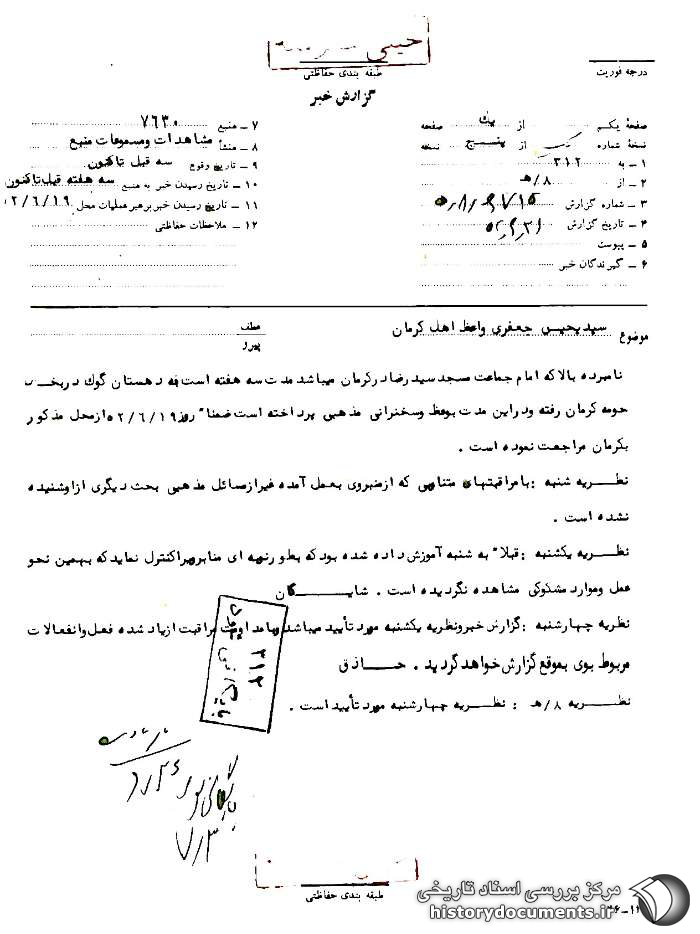 خیلی محرمانه
طبقه بندی حفاظتی
گزارش خبر
درجه فوریت
صفحهٔ یکم از یک صفحه
نسخهٔ شماره از پنج نسخه
۱ – به ۳۱۲
۲ – از ۸/هـ
۳ – شماره گزارش
۴ – تاریخ گزارش
۵ – پیوست
۶ – گیرندگان خبر
۷ – منبع ۷۶۳۰
۸ – منشأ مشاهدات ومسموعات منبع
۹ – تاریخ وقوع سه قبل تاکنون
۱۰ – تاریخ رسیدن خبر به منبع سه هفته قبل تاکنون
۱۱ – تاریخ رسیدن خبر برهبر عملیات محل ۵۲/۶/۱۹
۱۲ – ملاحظات حفاظتی
موضوع سید یحیی جعفری واعظ اهل کرمان
عطف
پیرو
نامبرده بالا که امام جماعت مسجد سید رضا در کرمان میباشد مدت سه هفته است به دهستان گوک در بخش
حومه کرمان رفته ودر این مدت بوعظ وسخنرانی مذهبی پرداخته است ضمناً روز ۵۲/۶/۱۹ از محل مذکور
بکرمان مراجعت نموده است .
نظریه شنبه : با مراقبتهای متناوبی که از منبر وی بعمل آمده غیر از مسائل مذهبی بحث دیگری از او شنیده
نشده است .
نظریه یکشنبه : قبلاً به شنبه آموزش داده شده بود که بطور نمونه ای منابر ویرا کنترل نماید که بهمین نحو
عمل وموارد مشکوکی مشاهده نگردیده است . شایگان
نظریه چهارشنبه : گزارش خبر ونظریه یکشنبه مورد تأیید میباشد وبا مداومت مراقبت از یاد شده فعل وانفعالات
مربوط بوی بموقع گزارش خواهد گردید . حاذق
نظریه ۸/هـ : نظریه چهارشنبه مورد تأیید است .
۳۱۲
بایگانی
طبقه بندی حفاظتی
مرکز بررسی اسناد تاریخی
historydocuments.ir